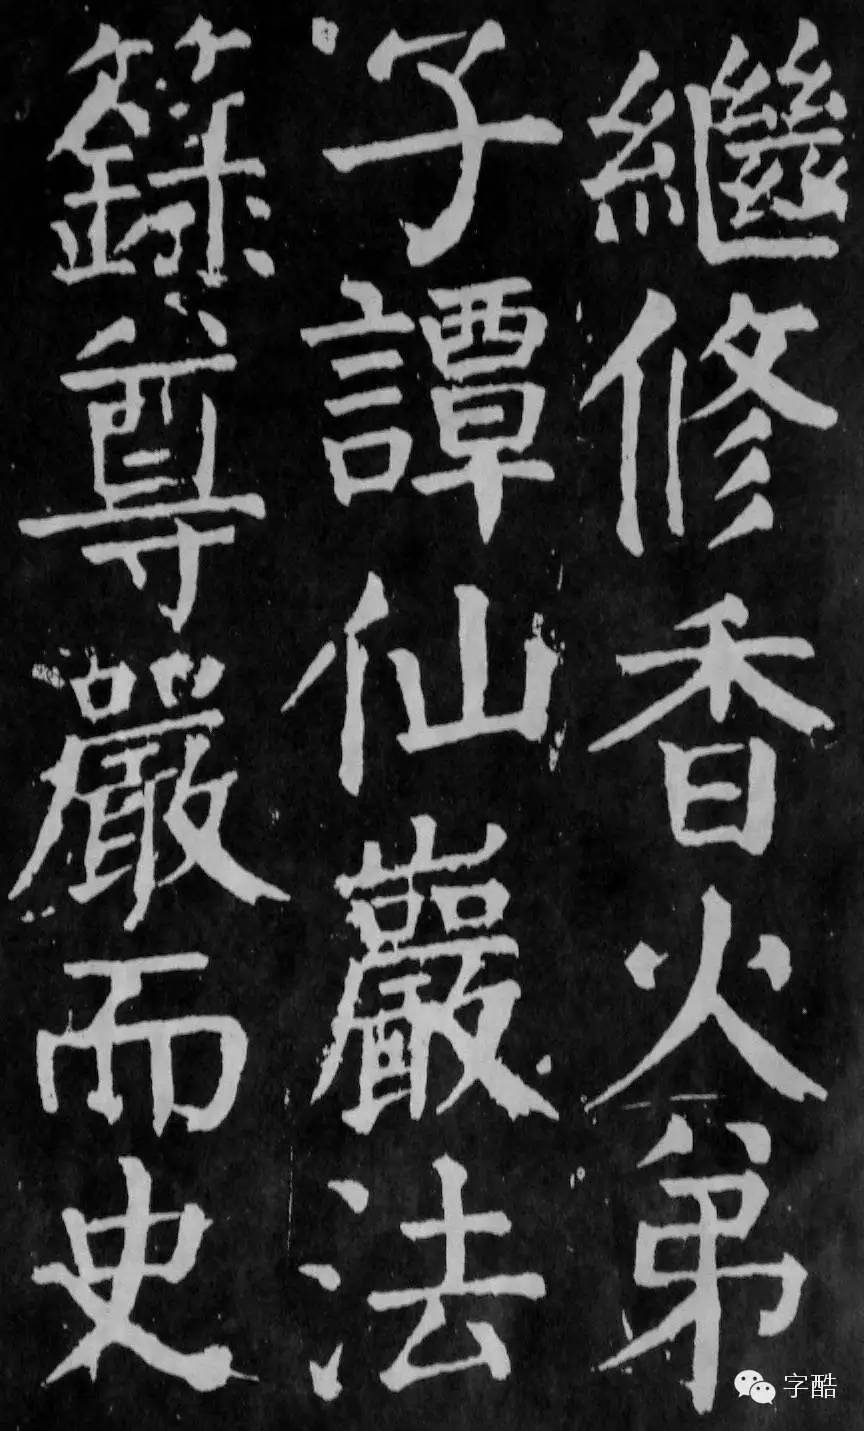 繼修香火弟
子譚仙巖法
籙尊嚴而史
字酷